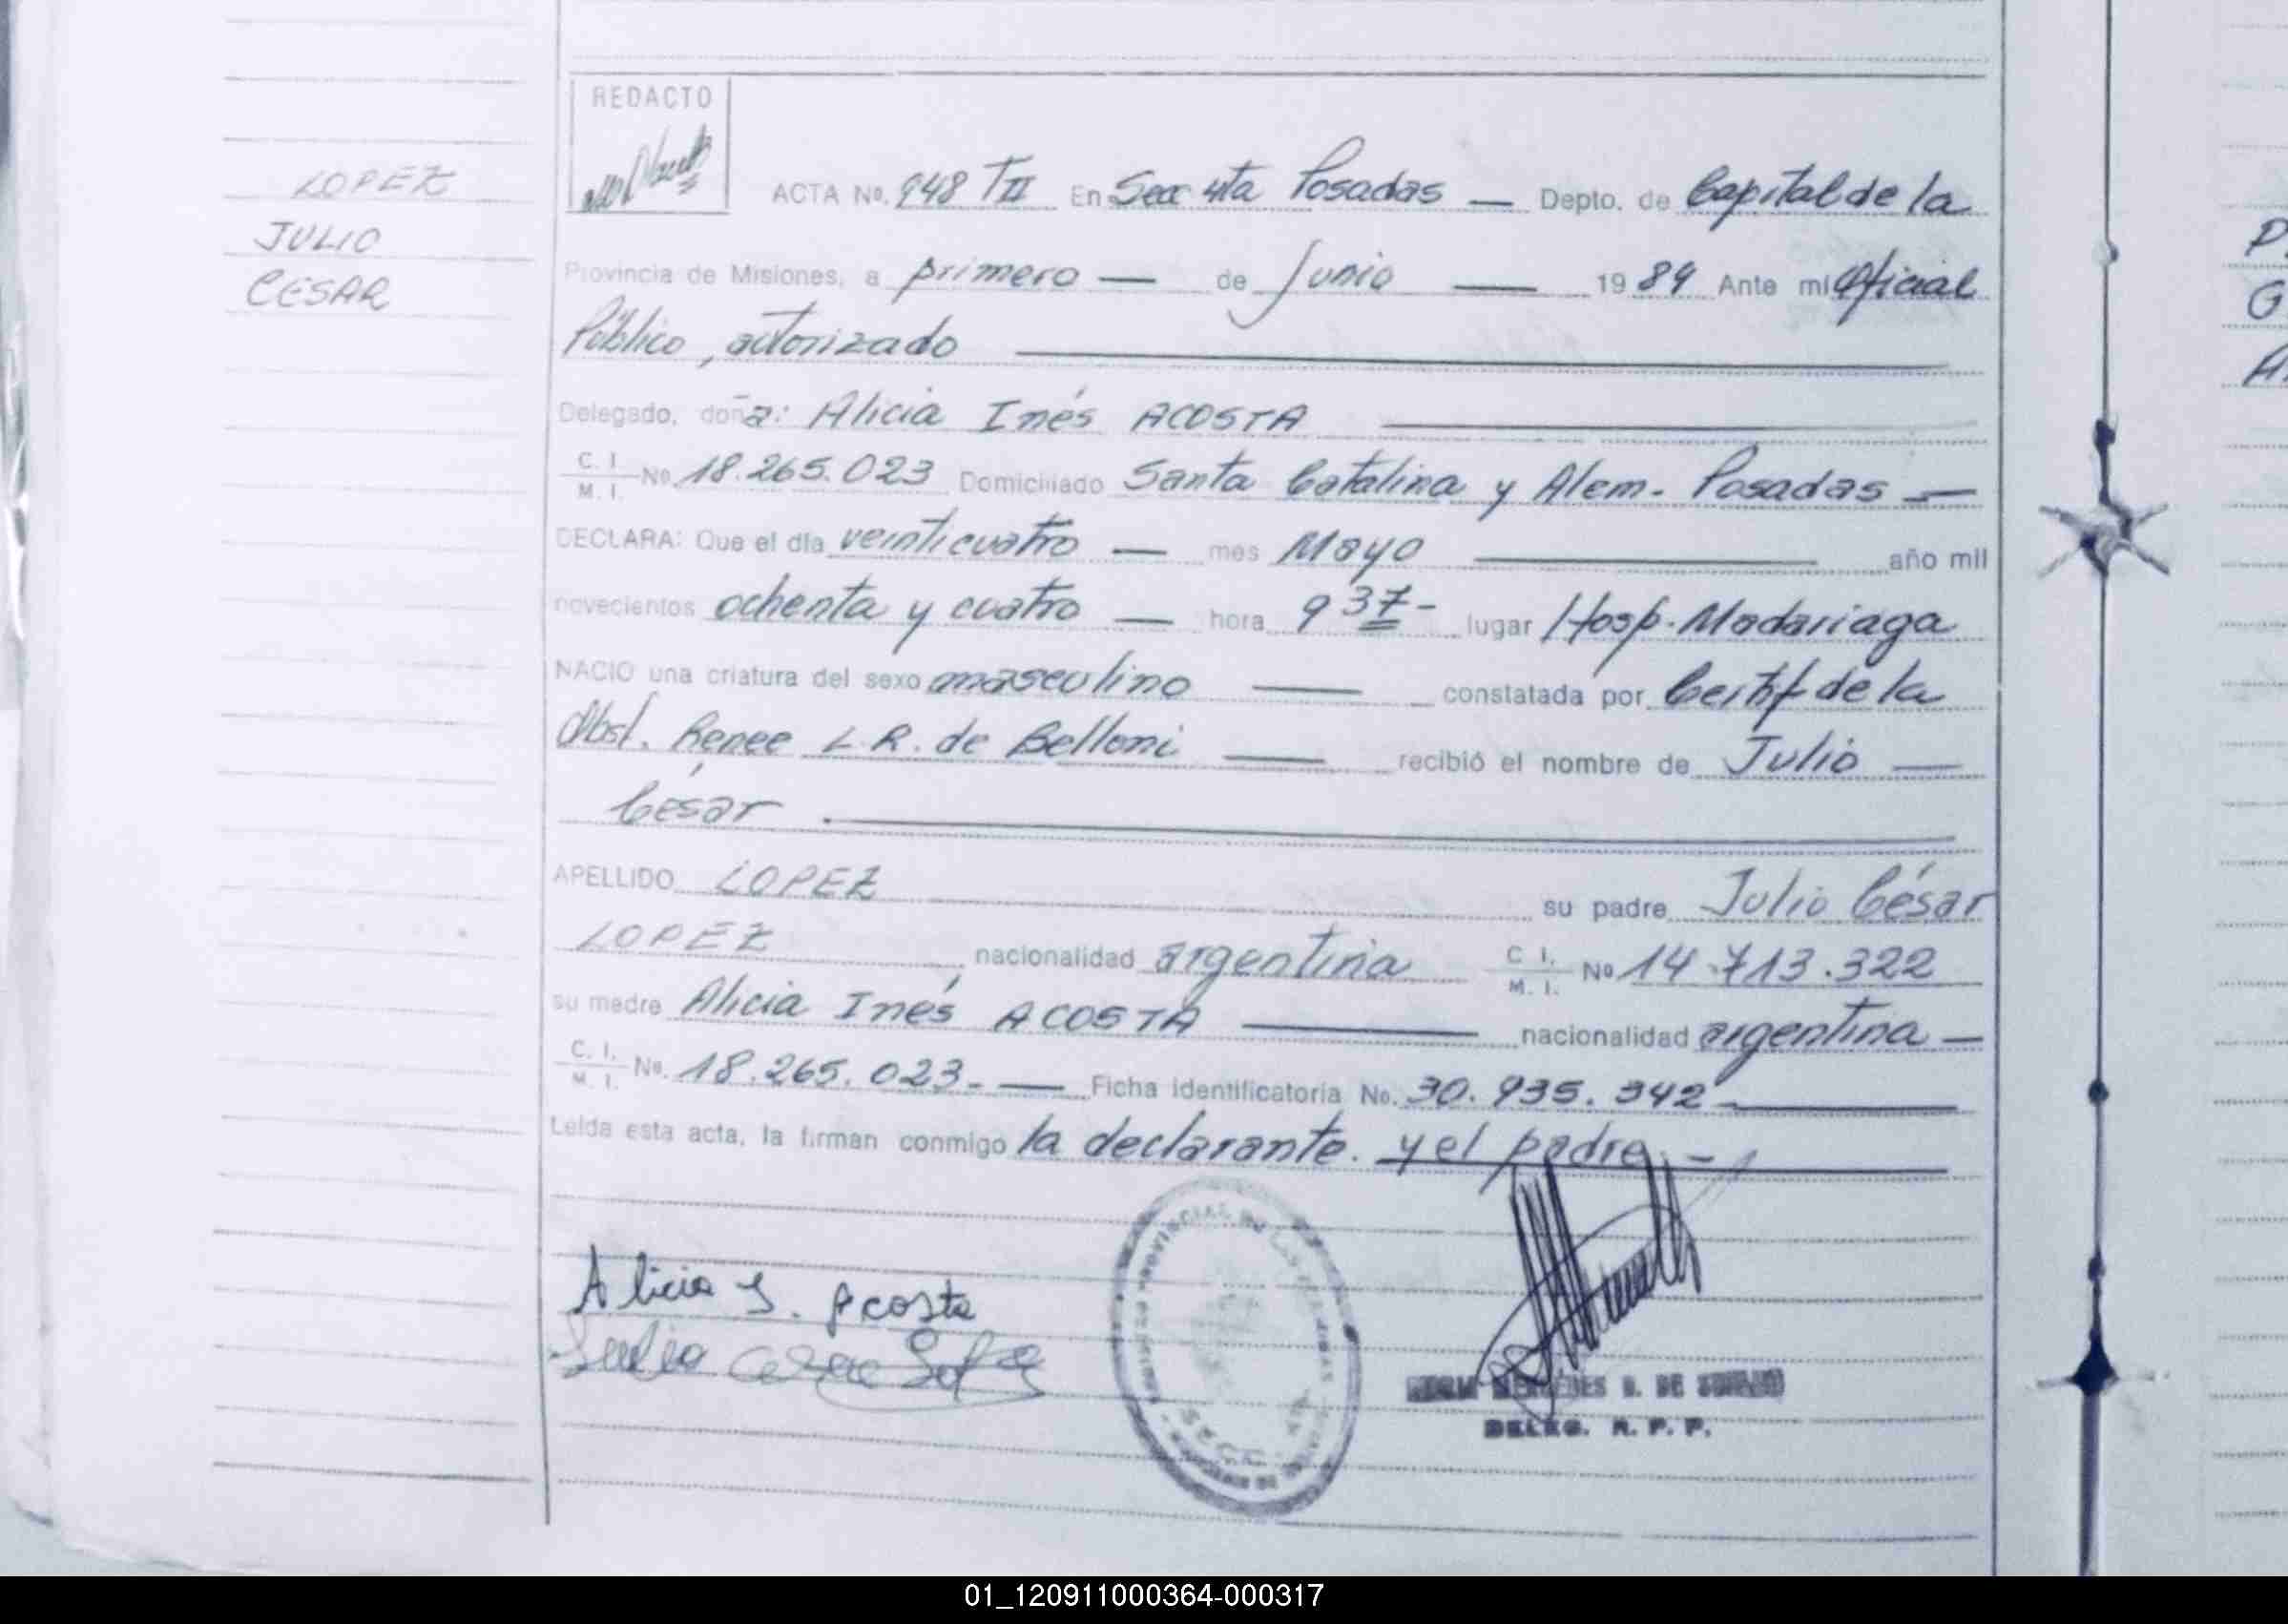 REDACTO
LOPEZ
JULIO
CESAR
ACTA No. 948 TII En Secc 4ta Posadas — Depto. de Capital de la
Provincia de Misiones, a primero — de Junio — 1984 Ante mi Oficial
Público, autorizado
Delegado, doña: Alicia Inés ACOSTA
C. I. / M. I. No. 18.265.023 Domiciliado Santa Catalina y Alem. Posadas —
DECLARA: Que el día veinticuatro — mes Mayo — año mil
novecientos ochenta y cuatro — hora 9 37 - lugar Hosp. Madariaga
NACIO una criatura del sexo masculino — constatada por Certif de la
Obst. Renee L. R. de Belloni — recibió el nombre de Julio —
César
APELLIDO LOPEZ su padre Julio César
LOPEZ nacionalidad argentina C I. / M. I. No 14.713.322
su madre Alicia Inés ACOSTA — nacionalidad argentina —
C. I. / M. I. No. 18.265.023. — Ficha Identificatoria No. 30.935.342 —
Leída esta acta, la firman conmigo la declarante. y el padre. -
Alicia I. Acosta
Julio Cesar Lopez
MERCEDES DE
DELEG. R. P. P.
P.
G
A
01_120911000364-000317